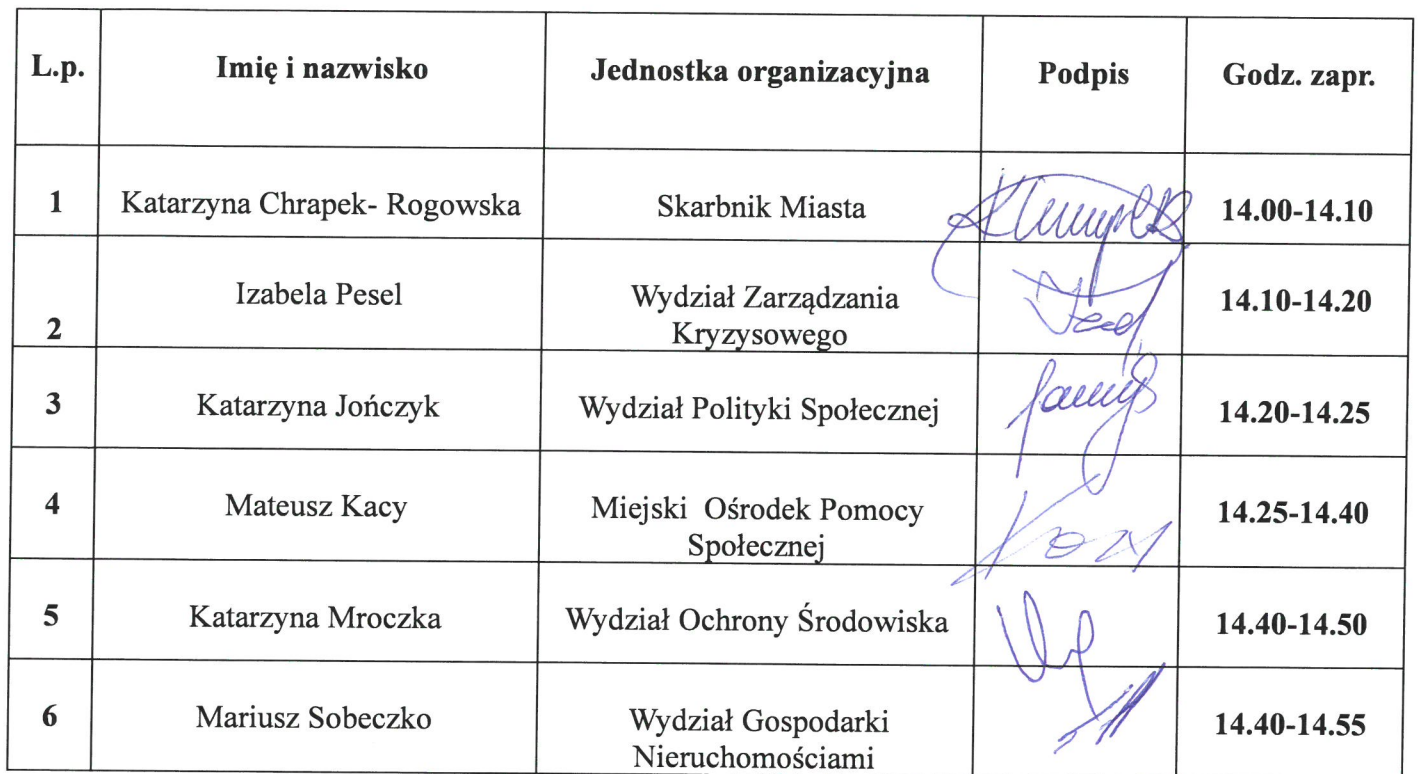 L.p. Imię i nazwisko Jednostka organizacyjna Podpis Godz. zapr.
1 Katarzyna Chrapek- Rogowska Skarbnik Miasta 14.00-14.10
Izabela Pesel Wydział Zarządzania 14.10-14.20
2 Kryzysowego
3 Katarzyna Jończyk Wydział Polityki Społecznej 14.20-14.25
4 Mateusz Kacy Miejski Ośrodek Pomocy 14.25-14.40
Społecznej
5 Katarzyna Mroczka Wydział Ochrony Środowiska 14.40-14.50
6 Mariusz Sobeczko Wydział Gospodarki 14.40-14.55
Nieruchomościami